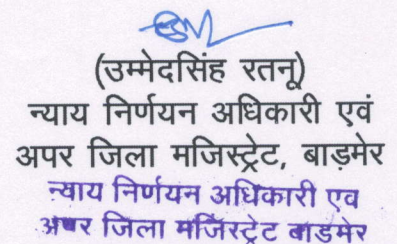 (उम्मेदसिंह रतनू)
न्याय निर्णयन अधिकारी एवं
अपर जिला मजिस्ट्रेट, बाड़मेर
न्याय निर्णयन अधिकारी एव
अपर जिला मजिस्ट्रेट बाडमेर